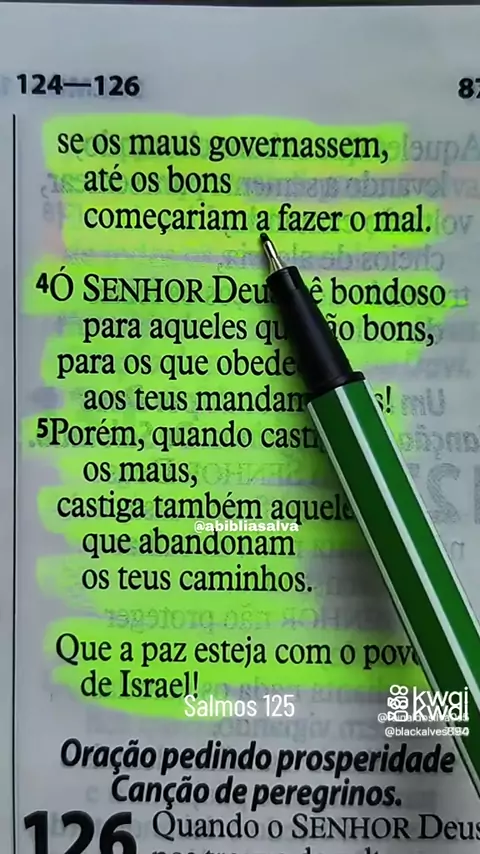 124—126
87
se os maus governassem,
até os bons
começariam a fazer o mal.
4Ó SENHOR Deus, sê bondoso
para aqueles que são bons,
para os que obede
aos teus mandam s!
5Porém, quando casti
os maus,
castiga também aquele
@abibliasalva
que abandonam
os teus caminhos.
Que a paz esteja com o povo
de Israel!
Salmos 125
kwai
@blackalves894
Oração pedindo prosperidade
Canção de peregrinos.
126 Quando o SENHOR Deus